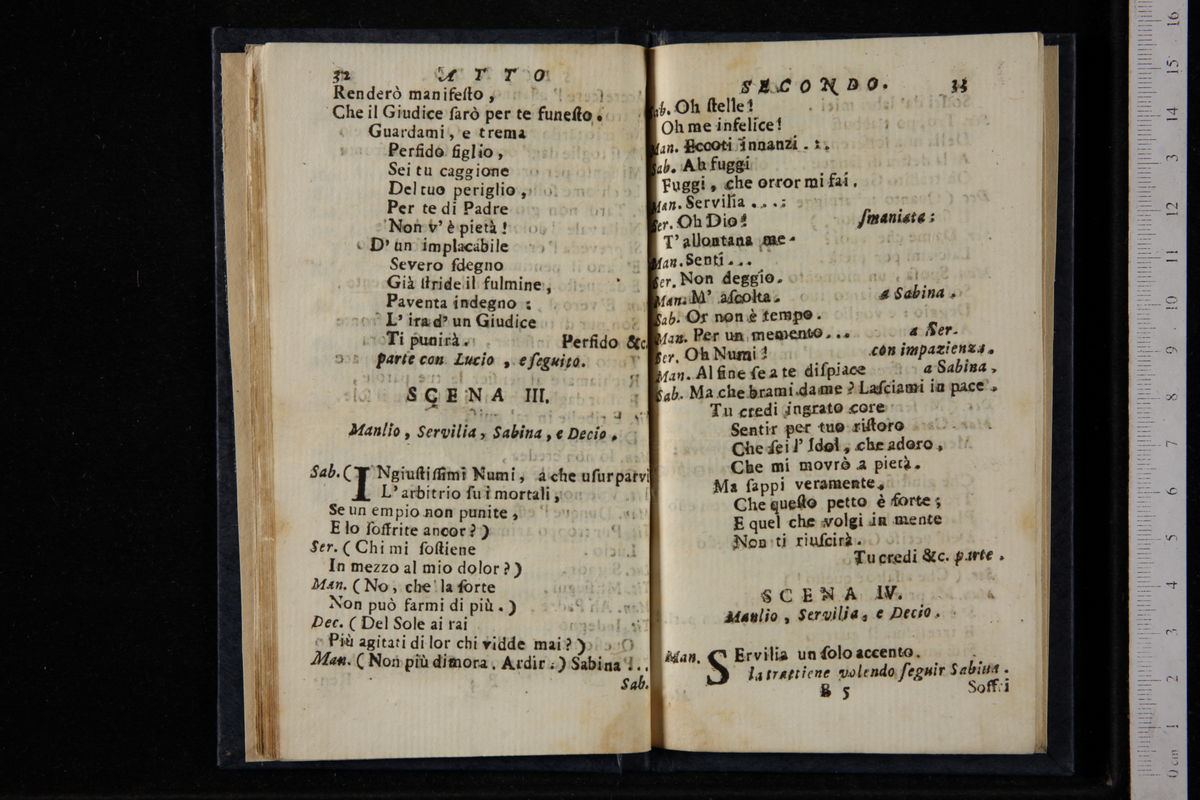 32 ATTO
Renderò manifeſto,
Che il Giudice ſarò per te funeſto.
Guardami, e trema
Perfido figlio,
Sei tu caggione
Del tuo periglio,
Per te di Padre
Non v' è pietà!
D' un implacabile
Severo ſdegno
Già ſtride il fulmine,
Paventa indegno:
L' ira d' un Giudice
Ti punirà. Perfido &c.
parte con Lucio, e ſeguito.
SCENA III.
Manlio, Servilia, Sabina, e Decio.
Sab. (INgiuſtiſſimi Numi, a che uſurparvi
L' arbitrio ſu i mortali,
Se un empio non punite,
E lo ſoffrite ancor?)
Ser. (Chi mi ſoſtiene
In mezzo al mio dolor?)
Man. (No, che la ſorte
Non può farmi di più.)
Dec. (Del Sole ai rai
Più agitati di lor chi vidde mai?)
Man. (Non più dimora. Ardir.) Sabina...
Sab.
SECONDO. 33
Sab. Oh ſtelle!
Oh me infelice!
Man. Eccoti innanzi...
Sab. Ah fuggi
Fuggi, che orror mi fai.
Man. Servilia....
Ser. Oh Dio! ſmaniata:
T' allontana me.
Man. Senti...
Ser. Non deggio.
Man. M' aſcolta. a Sabina.
Sab. Or non è tempo.
Man. Per un memento... a Ser.
Ser. Oh Numi! con impazienza.
Man. Al fine ſe a te diſpiace a Sabina,
Sab. Ma che brami da me? Laſciami in pace.
Tu credi ingrato core
Sentir per tuo riſtoro
Che ſei l' Idol, che adoro,
Che mi movrò a pietà.
Ma ſappi veramente,
Che queſto petto è forte;
E quel che volgi in mente
Non ti riuſcirà.
Tu credi &c. parte.
SCENA IV.
Manlio, Servilia, e Decio.
Man. SErvilia un ſolo accento.
la trattiene volendo ſeguir Sabina.
B 5 Soffri